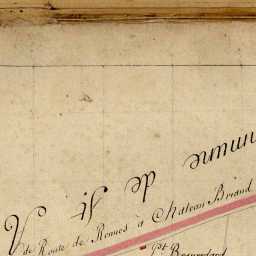 mmune de St
V de Route de Rennes à Chateau Briand
Pt Beauregard